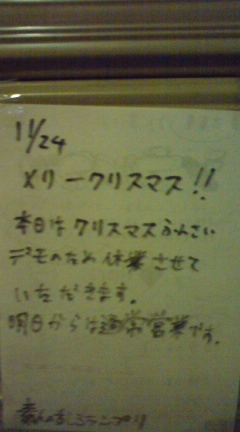 11/24
メリークリスマス!!
本日はクリスマスふんさい
デモのため休業させて
いただきます。
明日からは通常営業です。